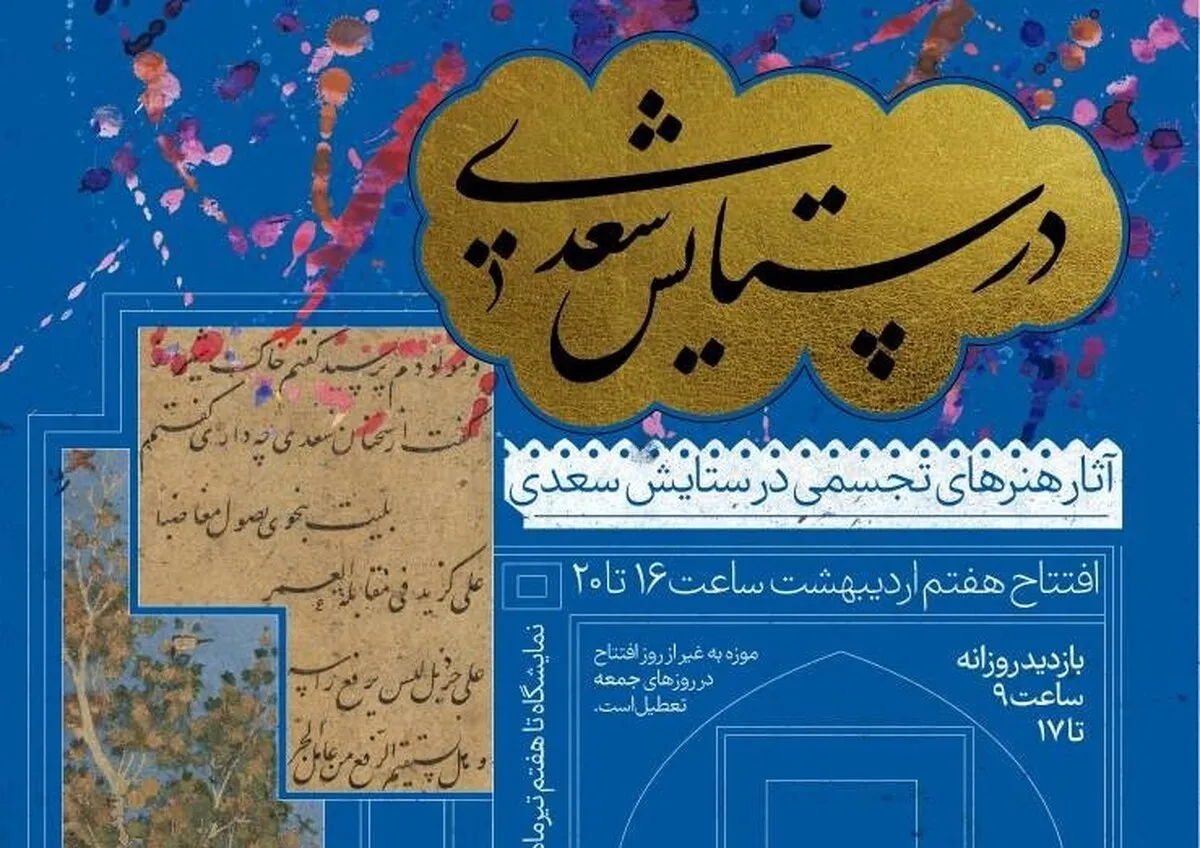 در ستایش سعدی
آثار هنرهای تجسمی در ستایش سعدی
افتتاح هفتم اردیبهشت ساعت ۱۶ تا ۲۰
بازدید روزانه
ساعت ۹
تا ۱۷
موزه به غیر از روز افتتاح
در روزهای جمعه
تعطیل است.
نمایشگاه تا هفتم تیرماه
و مولودم پرسید گفتم خاک شیراز
گفت از سخنان سعدی چه داری گفتم
بلیت بنحوی یصول مغاضبا
علی کزید فی مقابلة العمر
علی جر ذیل لیس یرفع راسه
و هل یستقیم الرفع من عامل الجر